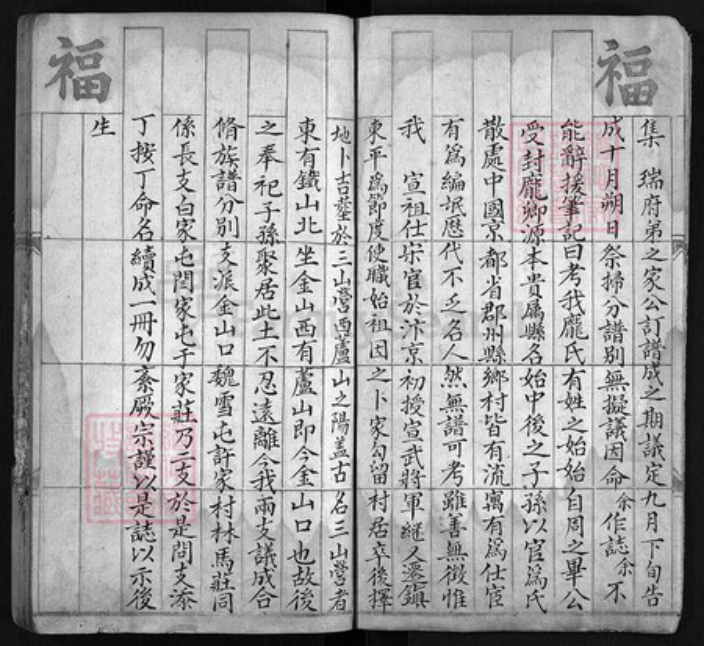 福
集　瑞府弟之家公訂譜成之期議定九月下旬告
成十月朔日祭掃分譜別無擬議因命余作誌余不
能辭援筆記曰考我龐氏有姓之始始自周之畢公
受封龐鄉源本貴屬縣名始中後之子孫以官為氏
散處中國京都省郡州縣鄉村皆有流寓有為仕宦
有為編氓歷代不乏名人然無譜可考雖善無徵惟
我　宣祖仕宋官於汴京初授宣武將軍繼又遷鎮
東平為節度使職始祖因之卜家勾留村居卒後擇
福
地卜吉塟於三山營西蘆山之陽蓋古名三山營者
東有鐵山北坐金山西有蘆山即今金山口也故後
之奉祀子孫聚居此土不忍遠離今我兩支議成合
脩族譜分別支派金山口魏雪屯許家村林馬莊同
係長支白家屯閆家屯于家莊乃二支於是問支添
丁按丁命名續成一冊勿紊厥宗謹以是誌以示後
生